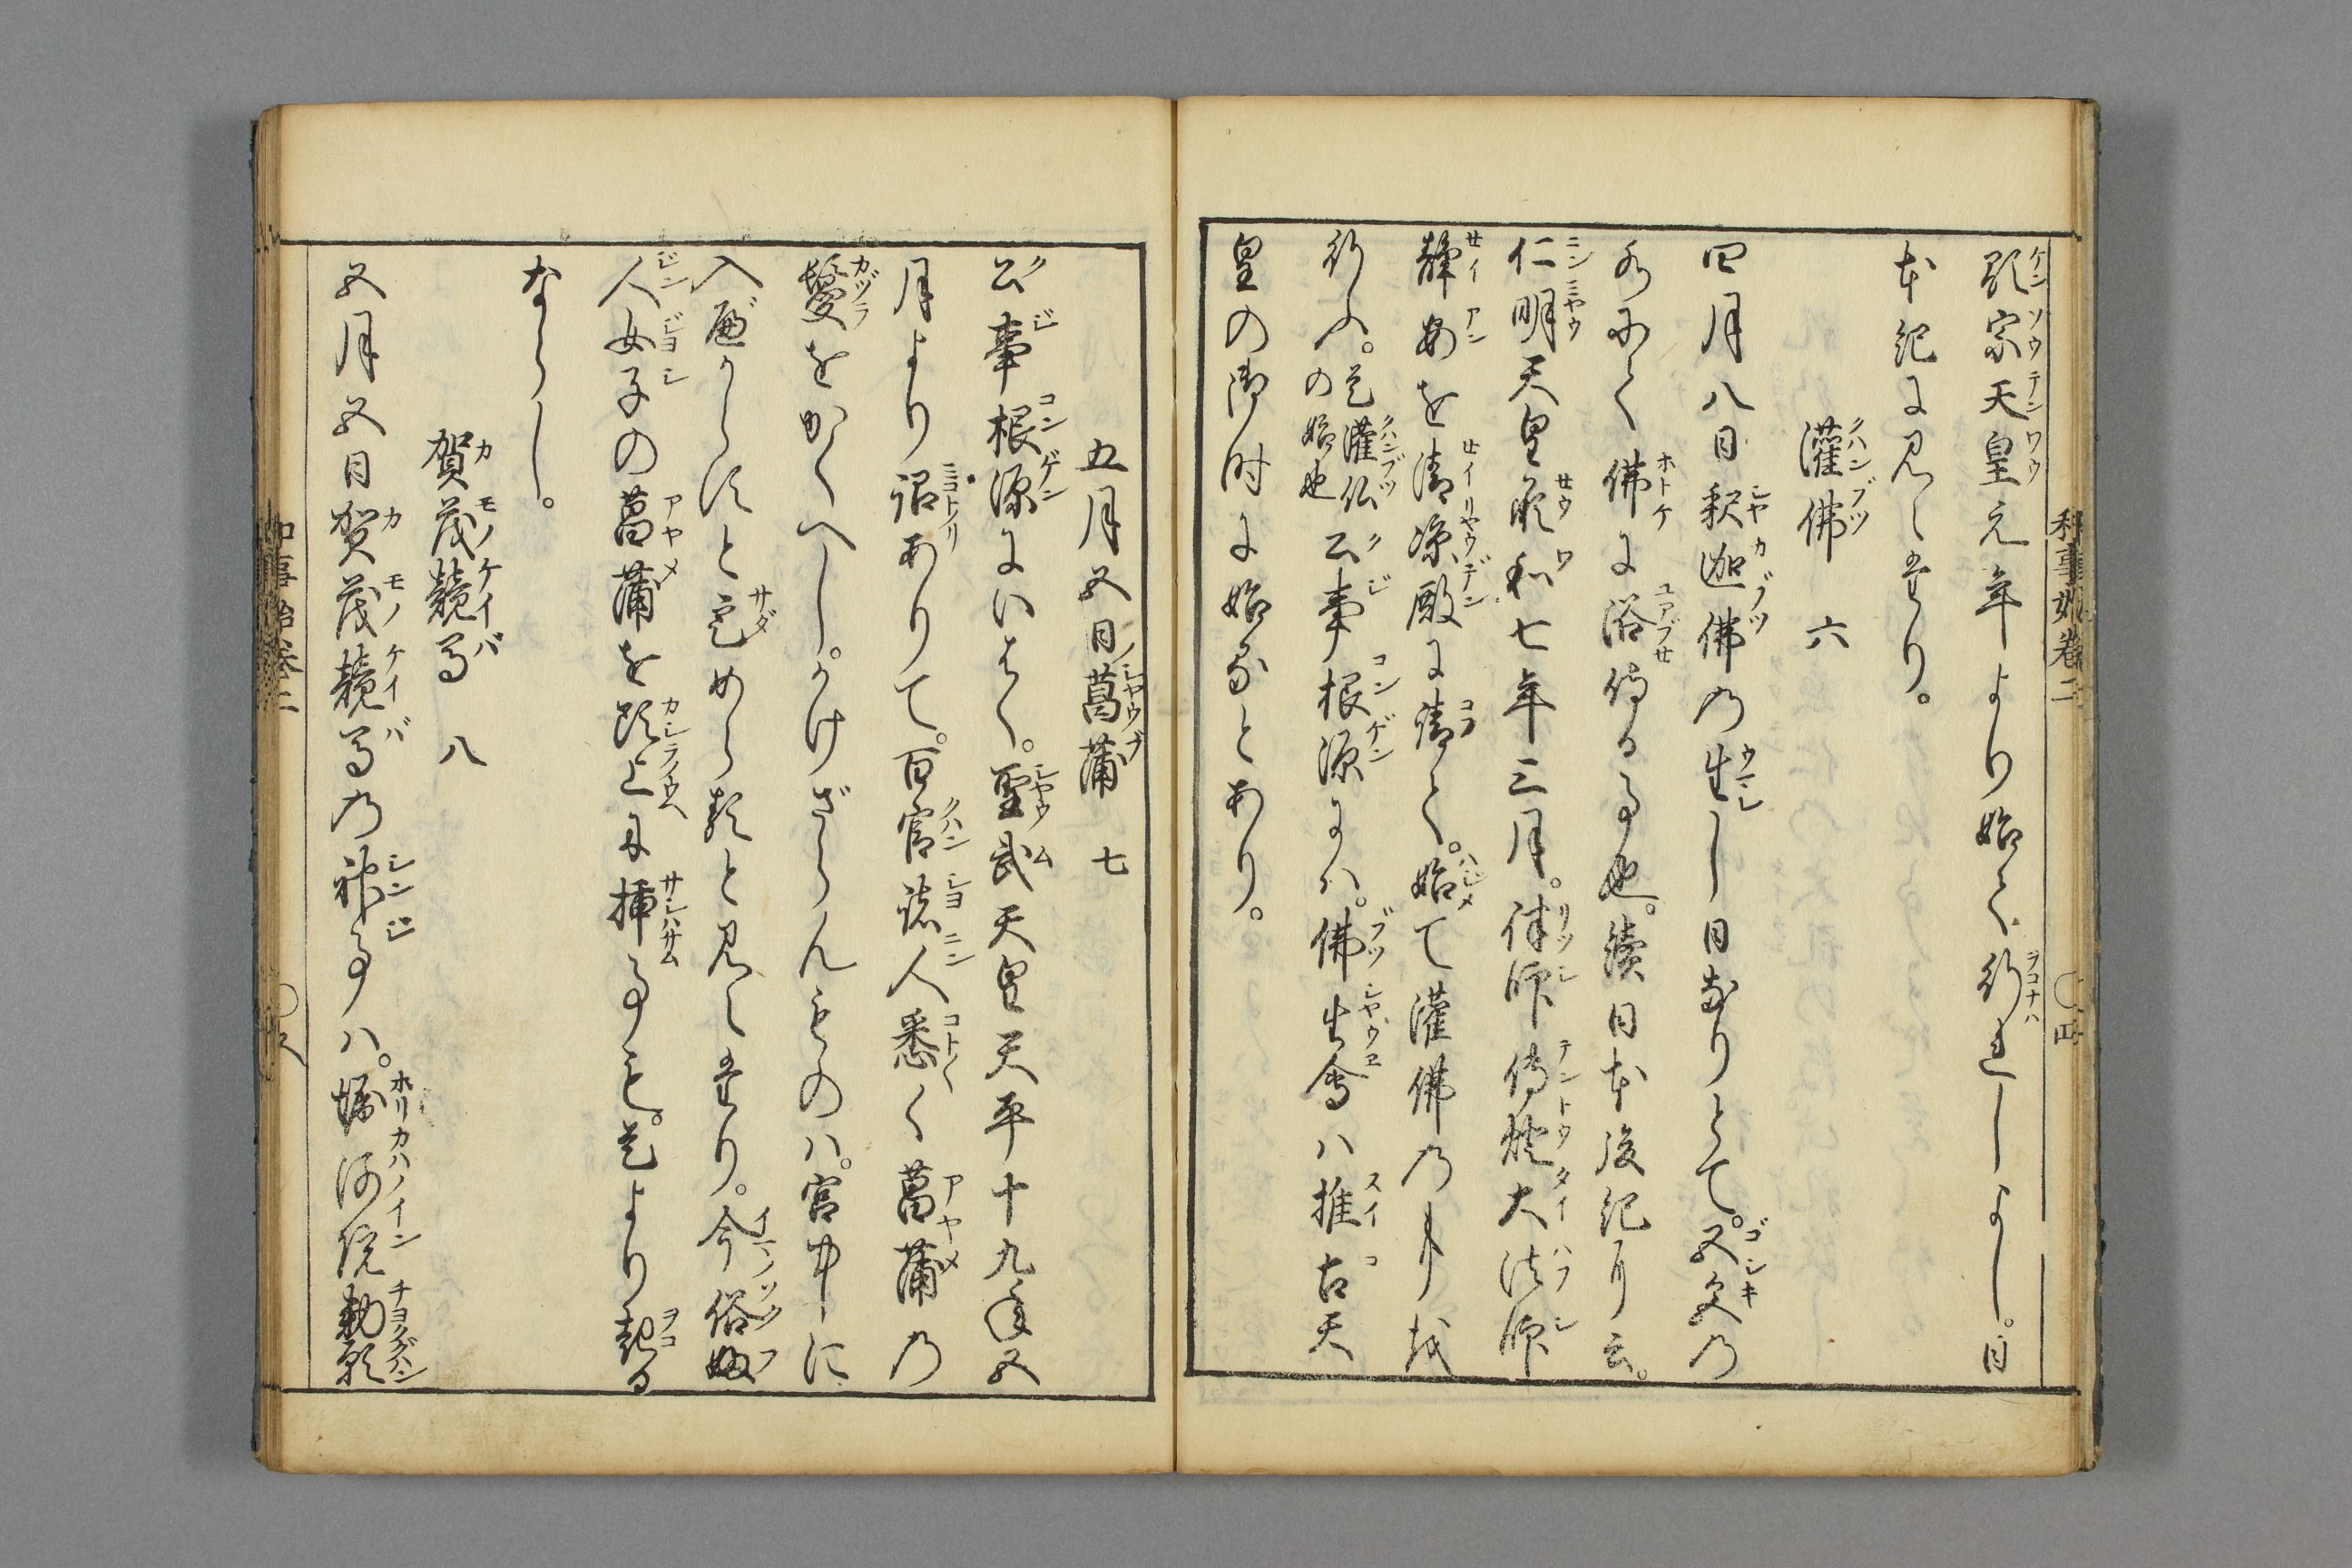 顕宗天皇元年より始て行れしよし。日
本紀に見えたり。
灌佛 六
四月八日釈迦佛の生し日なりとて。五色の
水にて佛に浴侍る事也。續日本後紀曰云。
仁明天皇承和七年三月。律師傳燈大法師
静安を清涼殿に請て。始て灌佛の事を
行ふ。是灌仏の始也公事根源には。佛生會ハ推古天
皇の御時に始るとあり。
和事始巻二 〇四
五月五日菖蒲 七
公事根源にいはく。聖武天皇天平十九年五
月より詔ありて。百官諸人悉く菖蒲の
鬘をかくへし。かけざらんものハ。宮中に
入べからずと定めらるゝと見えたり。今俗婦
人女子の菖蒲を頭上に挿事も。是より起る
ならし。
賀茂競馬 八
五月五日賀茂競馬の神事ハ。堀河院勅願
和事始巻二 〇五